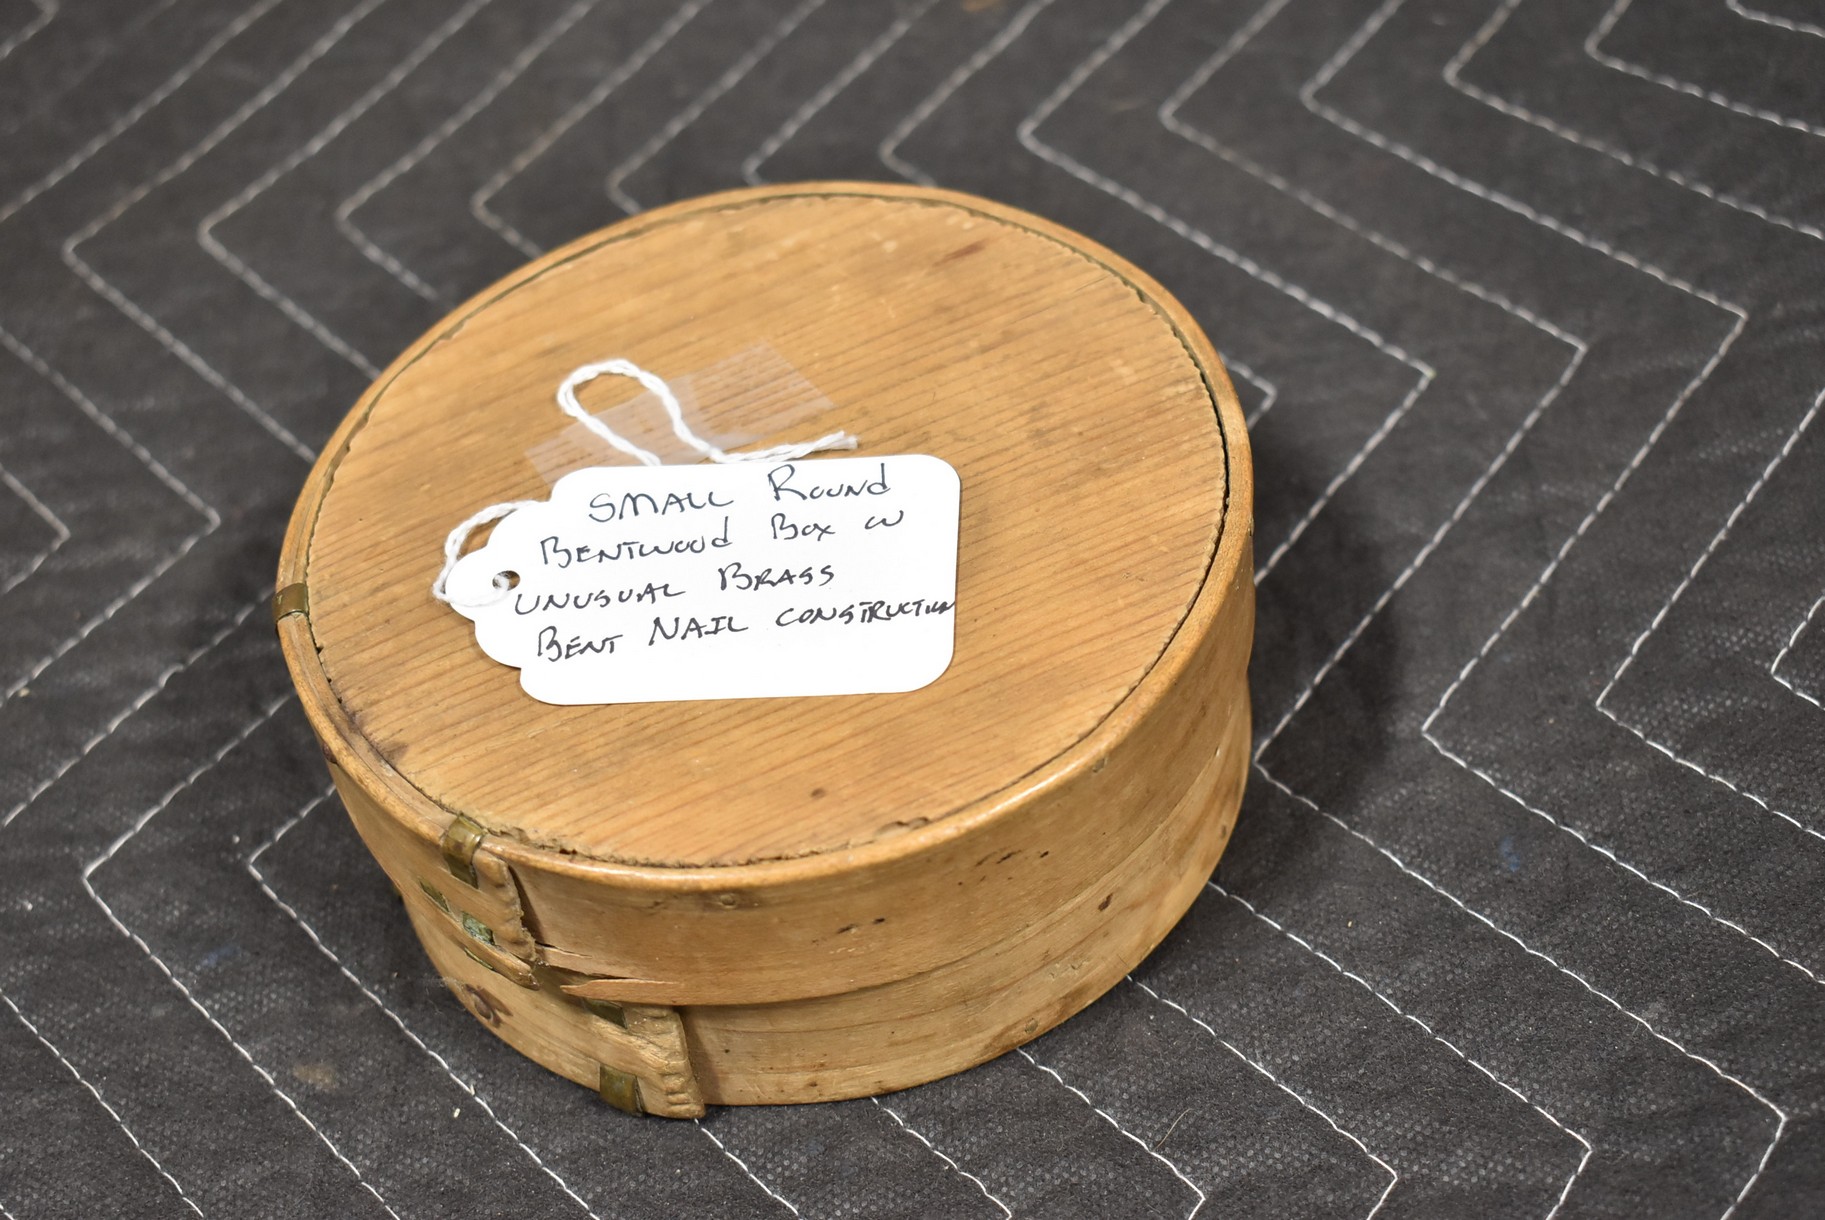 SMALL ROUND
BENTWOOD BOX W
UNUSUAL BRASS
BENT NAIL CONSTRUCTION